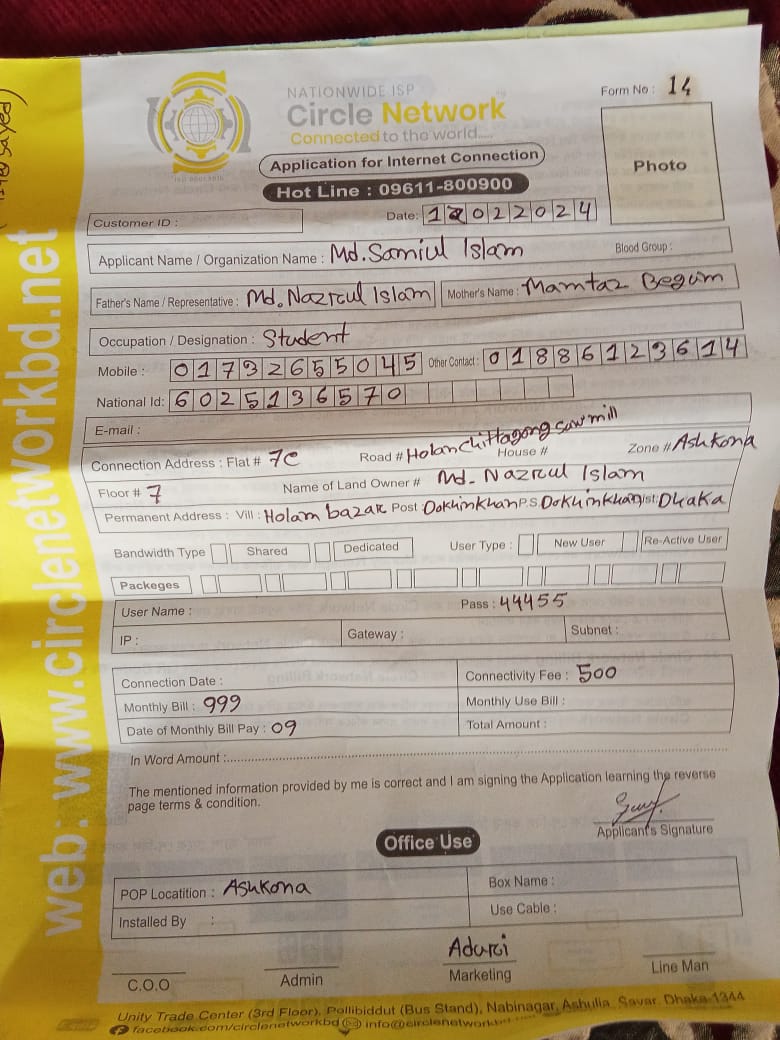 NATIONWIDE ISP
Circle Network
Connected to the world....
Form No : 14
Photo
Application for Internet Connection
Hot Line : 09611-800900
Customer ID :
Date: 12022024
Applicant Name / Organization Name : Md. Samiul Islam
Blood Group :
Father's Name / Representative : Md. Nazrul Islam
Mother's Name : Mamtaz Begum
Occupation / Designation : Student
Mobile : 01732655045
Other Contact : 01886123614
National Id: 6025136570
E-mail :
Connection Address : Flat # 7C Road # Holan Chittagong saw mill House # Zone # Ashkona
Floor # 7 Name of Land Owner # Md. Nazrul Islam
Permanent Address : Vill : Holam bazar Post Dokhinkhan P.S Dokhinkhan Dist: Dhaka
Bandwidth Type Shared Dedicated User Type : New User Re-Active User
Packeges
User Name : Pass : 44455
IP : Gateway : Subnet :
Connection Date : Connectivity Fee : 500
Monthly Bill : 999 Monthly Use Bill :
Date of Monthly Bill Pay : 09 Total Amount :
In Word Amount :
The mentioned information provided by me is correct and I am signing the Application learning the reverse
page terms & condition.
Applicant's Signature
Office Use
POP Locatition : Ashkona Box Name :
Installed By : Use Cable :
C.O.O
Admin
Marketing
Line Man
Unity Trade Center (3rd Floor), Pollibiddut (Bus Stand), Nabinagar, Ashulia, Savar, Dhaka-1344
facebook.com/circlenetworkbd info@circlenetwork
web: www.circlenetworkbd.net